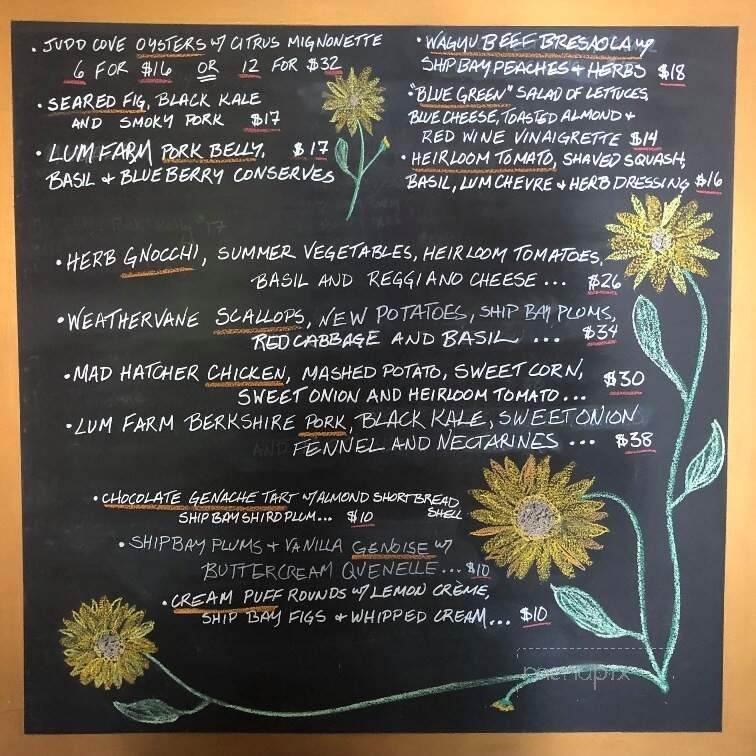 • JUDD COVE OYSTERS W/ CITRUS MIGNONETTE
6 FOR $16 OR 12 FOR $32
• SEARED FIG, BLACK KALE
AND SMOKY PORK $17
• LUM FARM PORK BELLY, $17
BASIL + BLUEBERRY CONSERVES
• WAGYU BEEF BRESAOLA W/
SHIP BAY PEACHES + HERBS $18
"BLUE GREEN" SALAD OF LETTUCES,
BLUE CHEESE, TOASTED ALMOND +
RED WINE VINAIGRETTE $14
• HEIRLOOM TOMATO, SHAVED SQUASH,
BASIL, LUM CHEVRE + HERB DRESSING $16
• HERB GNOCCHI, SUMMER VEGETABLES, HEIRLOOM TOMATOES,
BASIL AND REGGIANO CHEESE ... $26
• WEATHERVANE SCALLOPS, NEW POTATOES, SHIP BAY PLUMS,
RED CABBAGE AND BASIL ... $34
• MAD HATCHER CHICKEN, MASHED POTATO, SWEET CORN,
SWEET ONION AND HEIRLOOM TOMATO ... $30
• LUM FARM BERKSHIRE PORK, BLACK KALE, SWEET ONION
FENNEL AND NECTARINES ... $38
• CHOCOLATE GENACHE TART W/ ALMOND SHORTBREAD
SHELL
SHIP BAY SHIRO PLUM... $10
• SHIP BAY PLUMS + VANILLA GENOISE W/
BUTTERCREAM QUENELLE... $10
• CREAM PUFF ROUNDS W/ LEMON CRÈME,
SHIP BAY FIGS + WHIPPED CREAM... $10